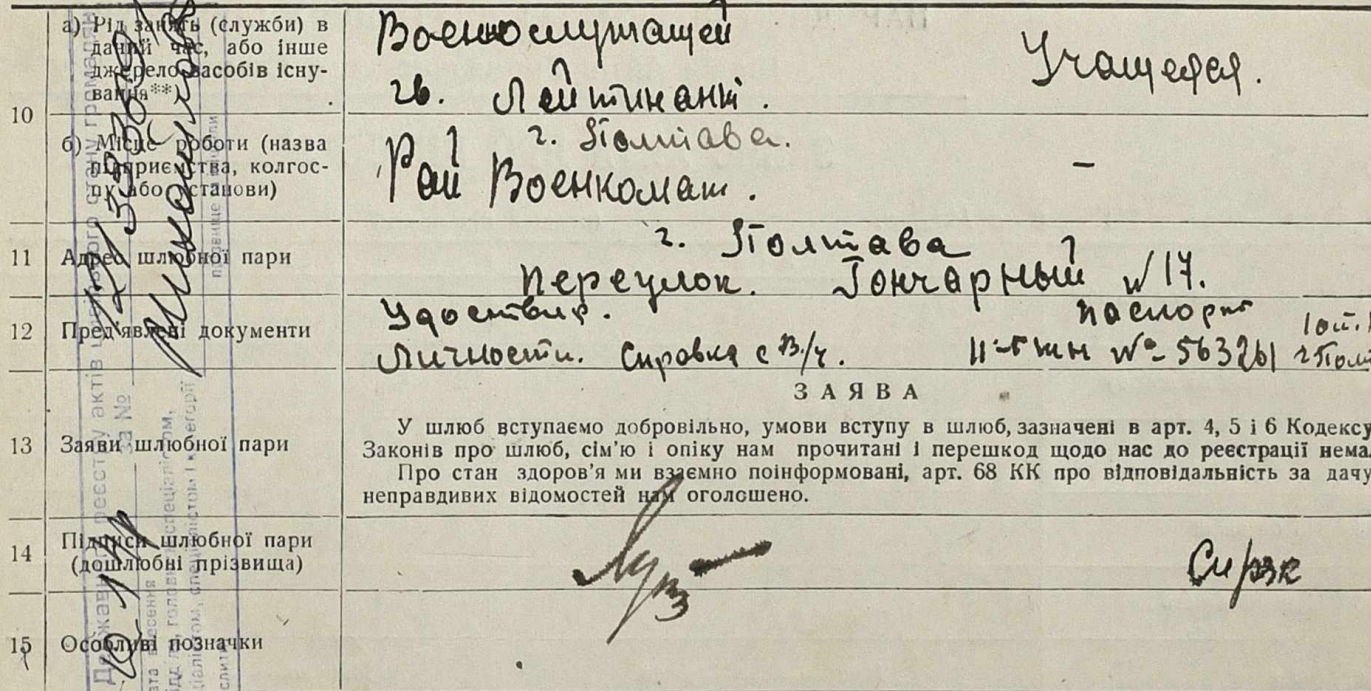 10
а) Рід занять (служби) в
даний час, або інше
джерело засобів існу-
вання**
Военнослужащей
гв. Лейтинант.
Учащейся.
б) Місце роботи (назва
підприємства, колгос-
пу або установи)
г. Полтава.
Рай Военкомат.
–
11
Адрес шлюбної пари
г. Полтава
Переулок. Гончарный №17.
12
Пред'явлені документи
Удоствир.
Личности. Справка с В/ч.
паспорт
№ 563261
13
Заяви шлюбної пари
ЗАЯВА
У шлюб вступаємо добровільно, умови вступу в шлюб, зазначені в арт. 4, 5 і 6 Кодексу
Законів про шлюб, сім'ю і опіку нам прочитані і перешкод щодо нас до реєстрації нема.
Про стан здоров'я ми взаємно поінформовані, арт. 68 КК про відповідальність за дачу
неправдивих відомостей нам оголошено.
14
Підписи шлюбної пари
(дошлюбні прізвища)
15
Особливі позначки
за №